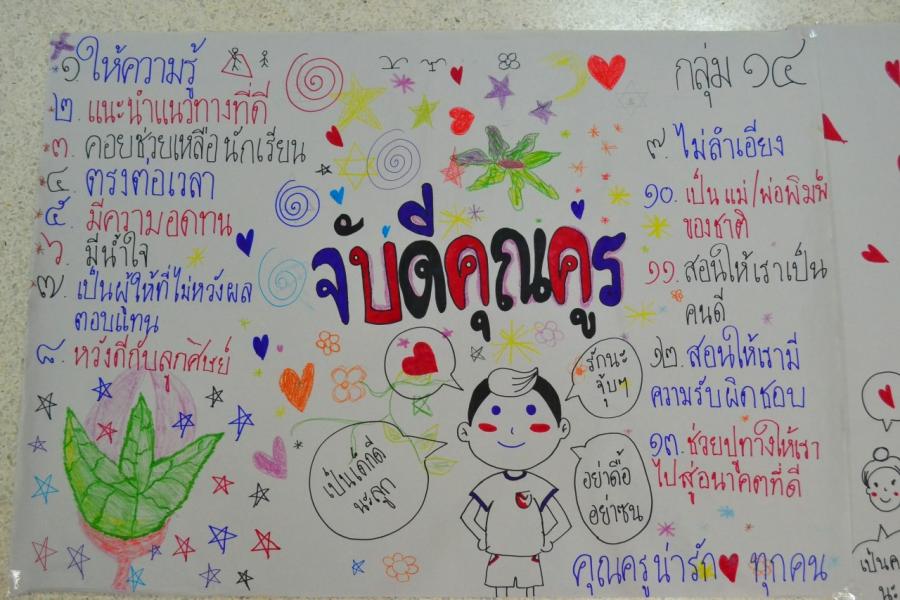 ๑ ให้ความรู้
๒. แนะนำแนวทางที่ดี
๓. คอยช่วยเหลือ นักเรียน
๔. ตรงต่อเวลา
๕. มีความอดทน
๖. มีน้ำใจ
๗. เป็นผู้ให้ที่ไม่หวังผล
ตอบแทน
๘. หวังดีกับลูกศิษย์
จับดีคุณครู
รักนะ
จุ๊บๆ
เป็นเด็กดี
นะลูก
อย่าดื้อ
อย่าซน
กลุ่ม ๑๔
๗. ไม่ลำเอียง
๑๐. เป็น แม่/พ่อพิมพ์
ของชาติ
๑๑. สอนให้เราเป็น
คนดี
๑๒. สอนให้เรามี
ความรับผิดชอบ
๑๓. ช่วยปูทางให้เรา
ไปสู่อนาคตที่ดี
คุณครูน่ารัก ทุกคน